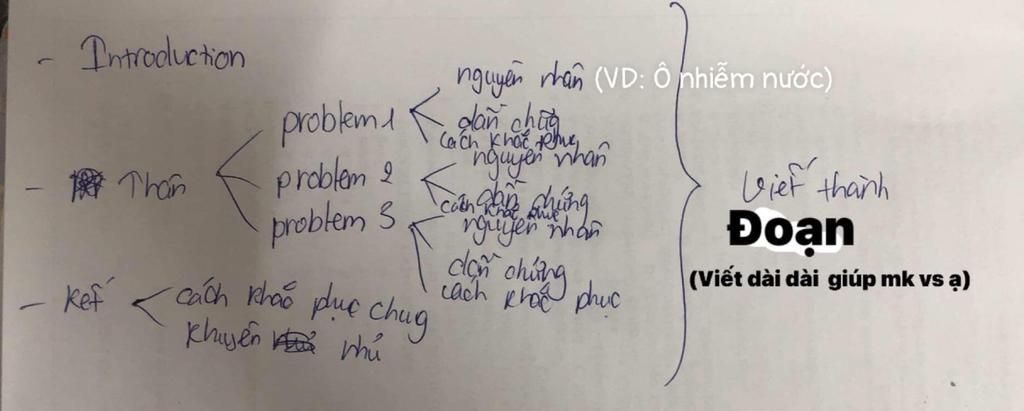 - Introduction
- Thân
problem 1
nguyên nhân (VD: Ô nhiễm nước)
dẫn chứng
cách khắc phục
problem 2
nguyên nhân
dẫn chứng
cách khắc phục
problem 3
nguyên nhân
dẫn chứng
cách khắc phục
- Kết
cách khắc phục chug
khuyên nhủ
Viết thành
Đoạn
(Viết dài dài giúp mk vs ạ)